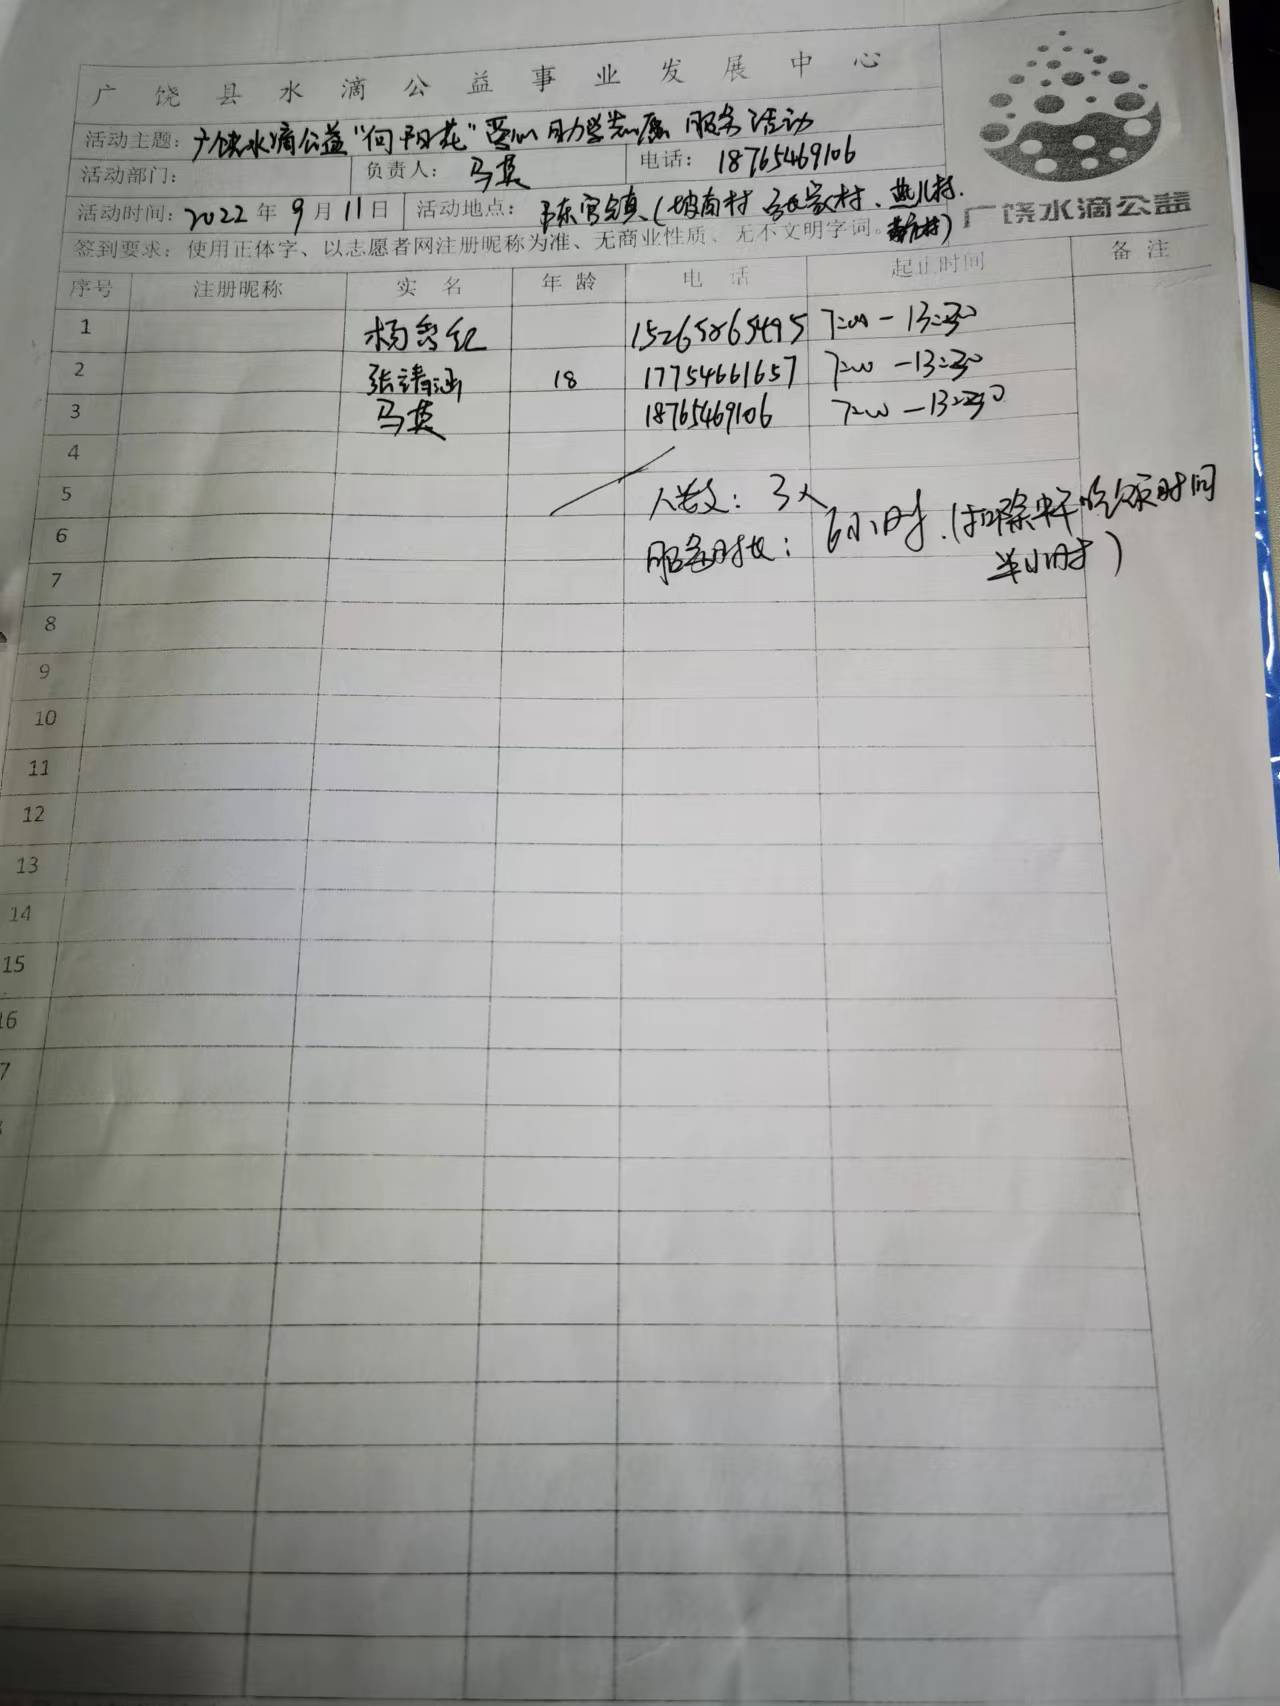 广饶县水滴公益事业发展中心
活动主题：广饶水滴公益"向阳花"爱心助学志愿服务活动
活动部门： 负责人：马英 电话：18765469106
活动时间：2022年9月11日 活动地点：陈官镇（坡南村 张家村、燕儿村、
村）
广饶水滴公益
签到要求：使用正体字、以志愿者网注册昵称为准、无商业性质、无不文明字词。
序号 注册昵称 实名 年龄 电话 起止时间 备注
1 杨 红 15265865495 7:00-13:30
2 张靖涵 18 17754661657 7:00-13:30
3 马英 18765469106 7:00-13:30
4
5 人数：3人
6 服务时长：6小时.（扣除中午吃饭时间
半小时）
7
8
9
10
11
12
13
14
15
16
7